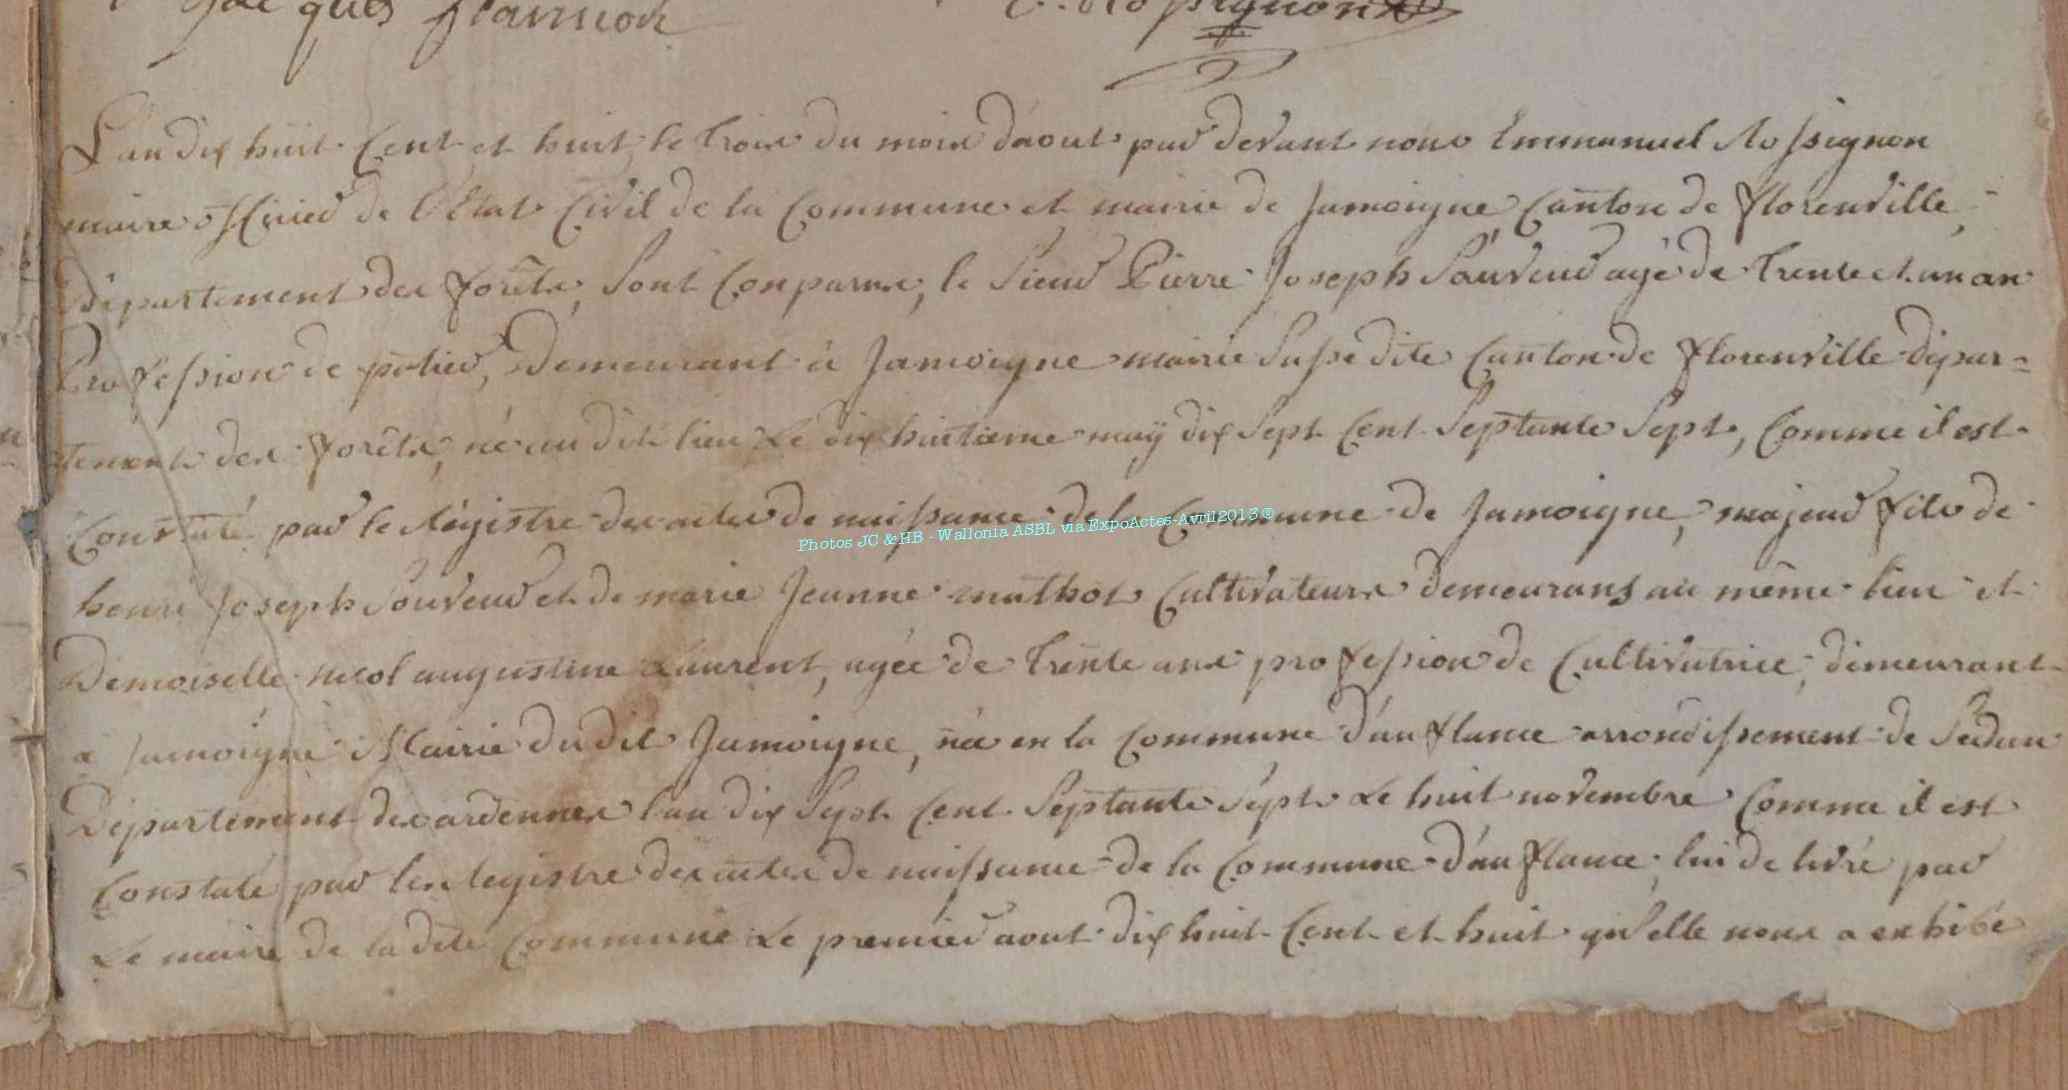 Jacques flamion
E. Rossignon
L'an dix huit Cent et huit, le trois du mois d'aout par devant nous Emmanuel Rossignon
maire officier de l'Etat Civil de la Commune et mairie de Jamoigne Canton de florenville,
Département des forêts, Sont Comparus, le Sieur Pierre Joseph Sauveur agé de trente et un an
Profession de potier, Demeurant à Jamoigne mairie Susdite Canton de florenville dépar=
tement des forêts, né au dit lieu Le dix huitieme may dix Sept Cent Septante Sept, Comme il est
Constaté par le Régistre des actes de naissance de la Commune de Jamoigne, majeur fils de
henri Joseph Souveur et de marie Jeanne mathot Cultivateurs demeurans au même lieu et
Demoiselle nicol augustine Laurent, agée de trente ans profession de Cultivatrice, demeurant
a Jamoigne Mairie du dit Jamoigne, née en la Commune d'auflance arrondissement de Sédan
Département des ardennes l'an dix Sept Cent Septante Sépt Le huit novembre Comme il est
Constaté par les Registre des actes de naissance de la Commune d'auflance, lui de livré par
Le maire de la dite Commune Le premier aout dix huit Cent et huit qu'elle nous a exhibé
Photos JC & HB - Wallonia ASBL via ExpoActes-Avril2013©